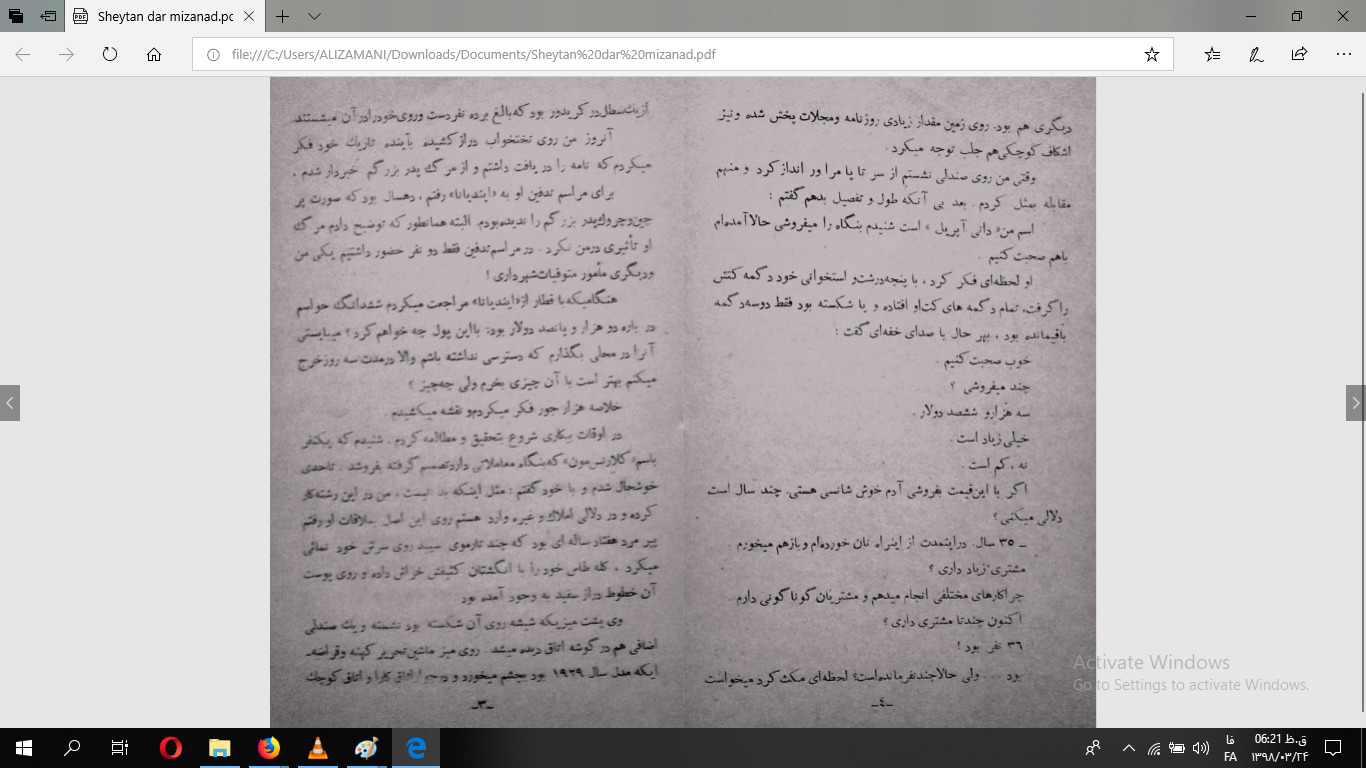 Sheytan dar mizanad.pd
file:///C:/Users/ALIZAMANI/Downloads/Documents/Sheytan%20dar%20mizanad.pdf
دیگری هم بود. روی زمین مقدار زیادی روزنامه ومجلات پخش شده ونیز
اشکاف کوچکی هم جلب توجه میکرد .
وقتی من روی صندلی نشستم از سر تا پا مرا ور انداز کرد و منهم
مقابله بمثل کردم. بعد بی آنکه طول و تفصیل بدهم گفتم :
اسم من« دانی آپریل » است شنیدم بنگاه را میفروشی حالا آمده‌ام
باهم صحبت کنیم .
او لحظه‌ای فکر کرد ، با پنجه‌درشت‌و استخوانی خود دگمه کتش
راگرفت، تمام دگمه های کت‌او افتاده و یا شکسته بود فقط دوسه‌دگمه
باقیمانده بود ، بهر حال با صدای خفه‌ای گفت :
خوب صحبت کنیم .
چند میفروشی ؟
سه هزارو ششصد دولار .
خیلی زیاد است .
نه ، کم است .
اگر با این‌قیمت بفروشی آدم خوش شانسی هستی. چند سال است
دلالی میکنی؟
ـ ۳۵ سال. دراینمدت از اینراه نان خورده‌ام وبازهم میخورم .
مشتری زیاد داری ؟
چراکارهای مختلفی انجام میدهم و مشتریان گوناگونی دارم .
اکنون چندتا مشتری داری ؟
۳۶ نفر بود !
بود .... ولی حالاچندنفرمانده‌است؟ لحظه‌ای مکث کرد میخواست
ـ٤ـ
ازیك‌سطل‌در کریدور بود که‌بالغ برده نفردست وروی‌خودرادرآن میشستند
آنروز من روی تختخواب درازکشیده بآینده تاریك خود فکر
میکردم که نامه را دریافت داشتم و از مرگ پدر بزرگم خبردار شدم .
برای مراسم تدفین او به «ایندیانا» رفتم ، ده‌سال بود که صورت پر
چین‌وچروك‌پدر بزرگم را ندیده‌بودم. البته همانطور که توضیح دادم مرگ
او تأثیری درمن نکرد . در مراسم‌تدفین فقط دو نفر حضور داشتیم یکی من
ودیگری مأمور متوفیات‌شهرداری !
هنگامیکه‌با قطار از«ایندیانا» مراجعت میکردم ششدانگ حواسم
در باره دو هزار و پانصد دولار بود: بااین پول چه خواهم‌کرد؟ میبایستی
آنرا در محلی بگذارم که دسترسی نداشته باشم والا درمدت سه روزخرج
میکنم بهتر است با آن چیزی بخرم ولی چه‌چیز ؟
خلاصه هزار جور فکر میکردم‌و نقشه میکشیدم .
در اوقات بیکاری شروع بتحقیق و مطالعه کردم . شنیدم که یکنفر
باسم« کلارنس‌مون» که‌بنگاه معاملاتی داردتصمیم گرفته بفروشد . تاحدی
خوشحال شدم و با خود گفتم : مثل اینکه بد نیست ، من در این رشته‌کار
کرده و در دلالی املاك‌و غیره وارد هستم روی این اصل بملاقات او رفتم
پیر مرد هفتاد ساله ای بود که چند تارموی سپید روی سرش خود نمائی
میکرد ، کله طاس خود را با انگشتان کثیفش خراش داده و روی پوست
آن خطوط دراز سفید به وجود آمده بود
وی پشت میزیکه شیشه روی آن شکسته بود نشسته و یك صندلی
اضافی هم درگوشه اتاق دیده میشد . روی میز ماشین‌تحریر کهنه وقراضه‌ـ
ایکه مدل سال ۱۹۲۹ بود بچشم میخورد و اتاق کوچك
ـ۳ـ
Activate Windows
Go to Settings to activate Windows.
فا
FA
06:21 ق.ظ
۱۳۹۸/۰۳/۲۴